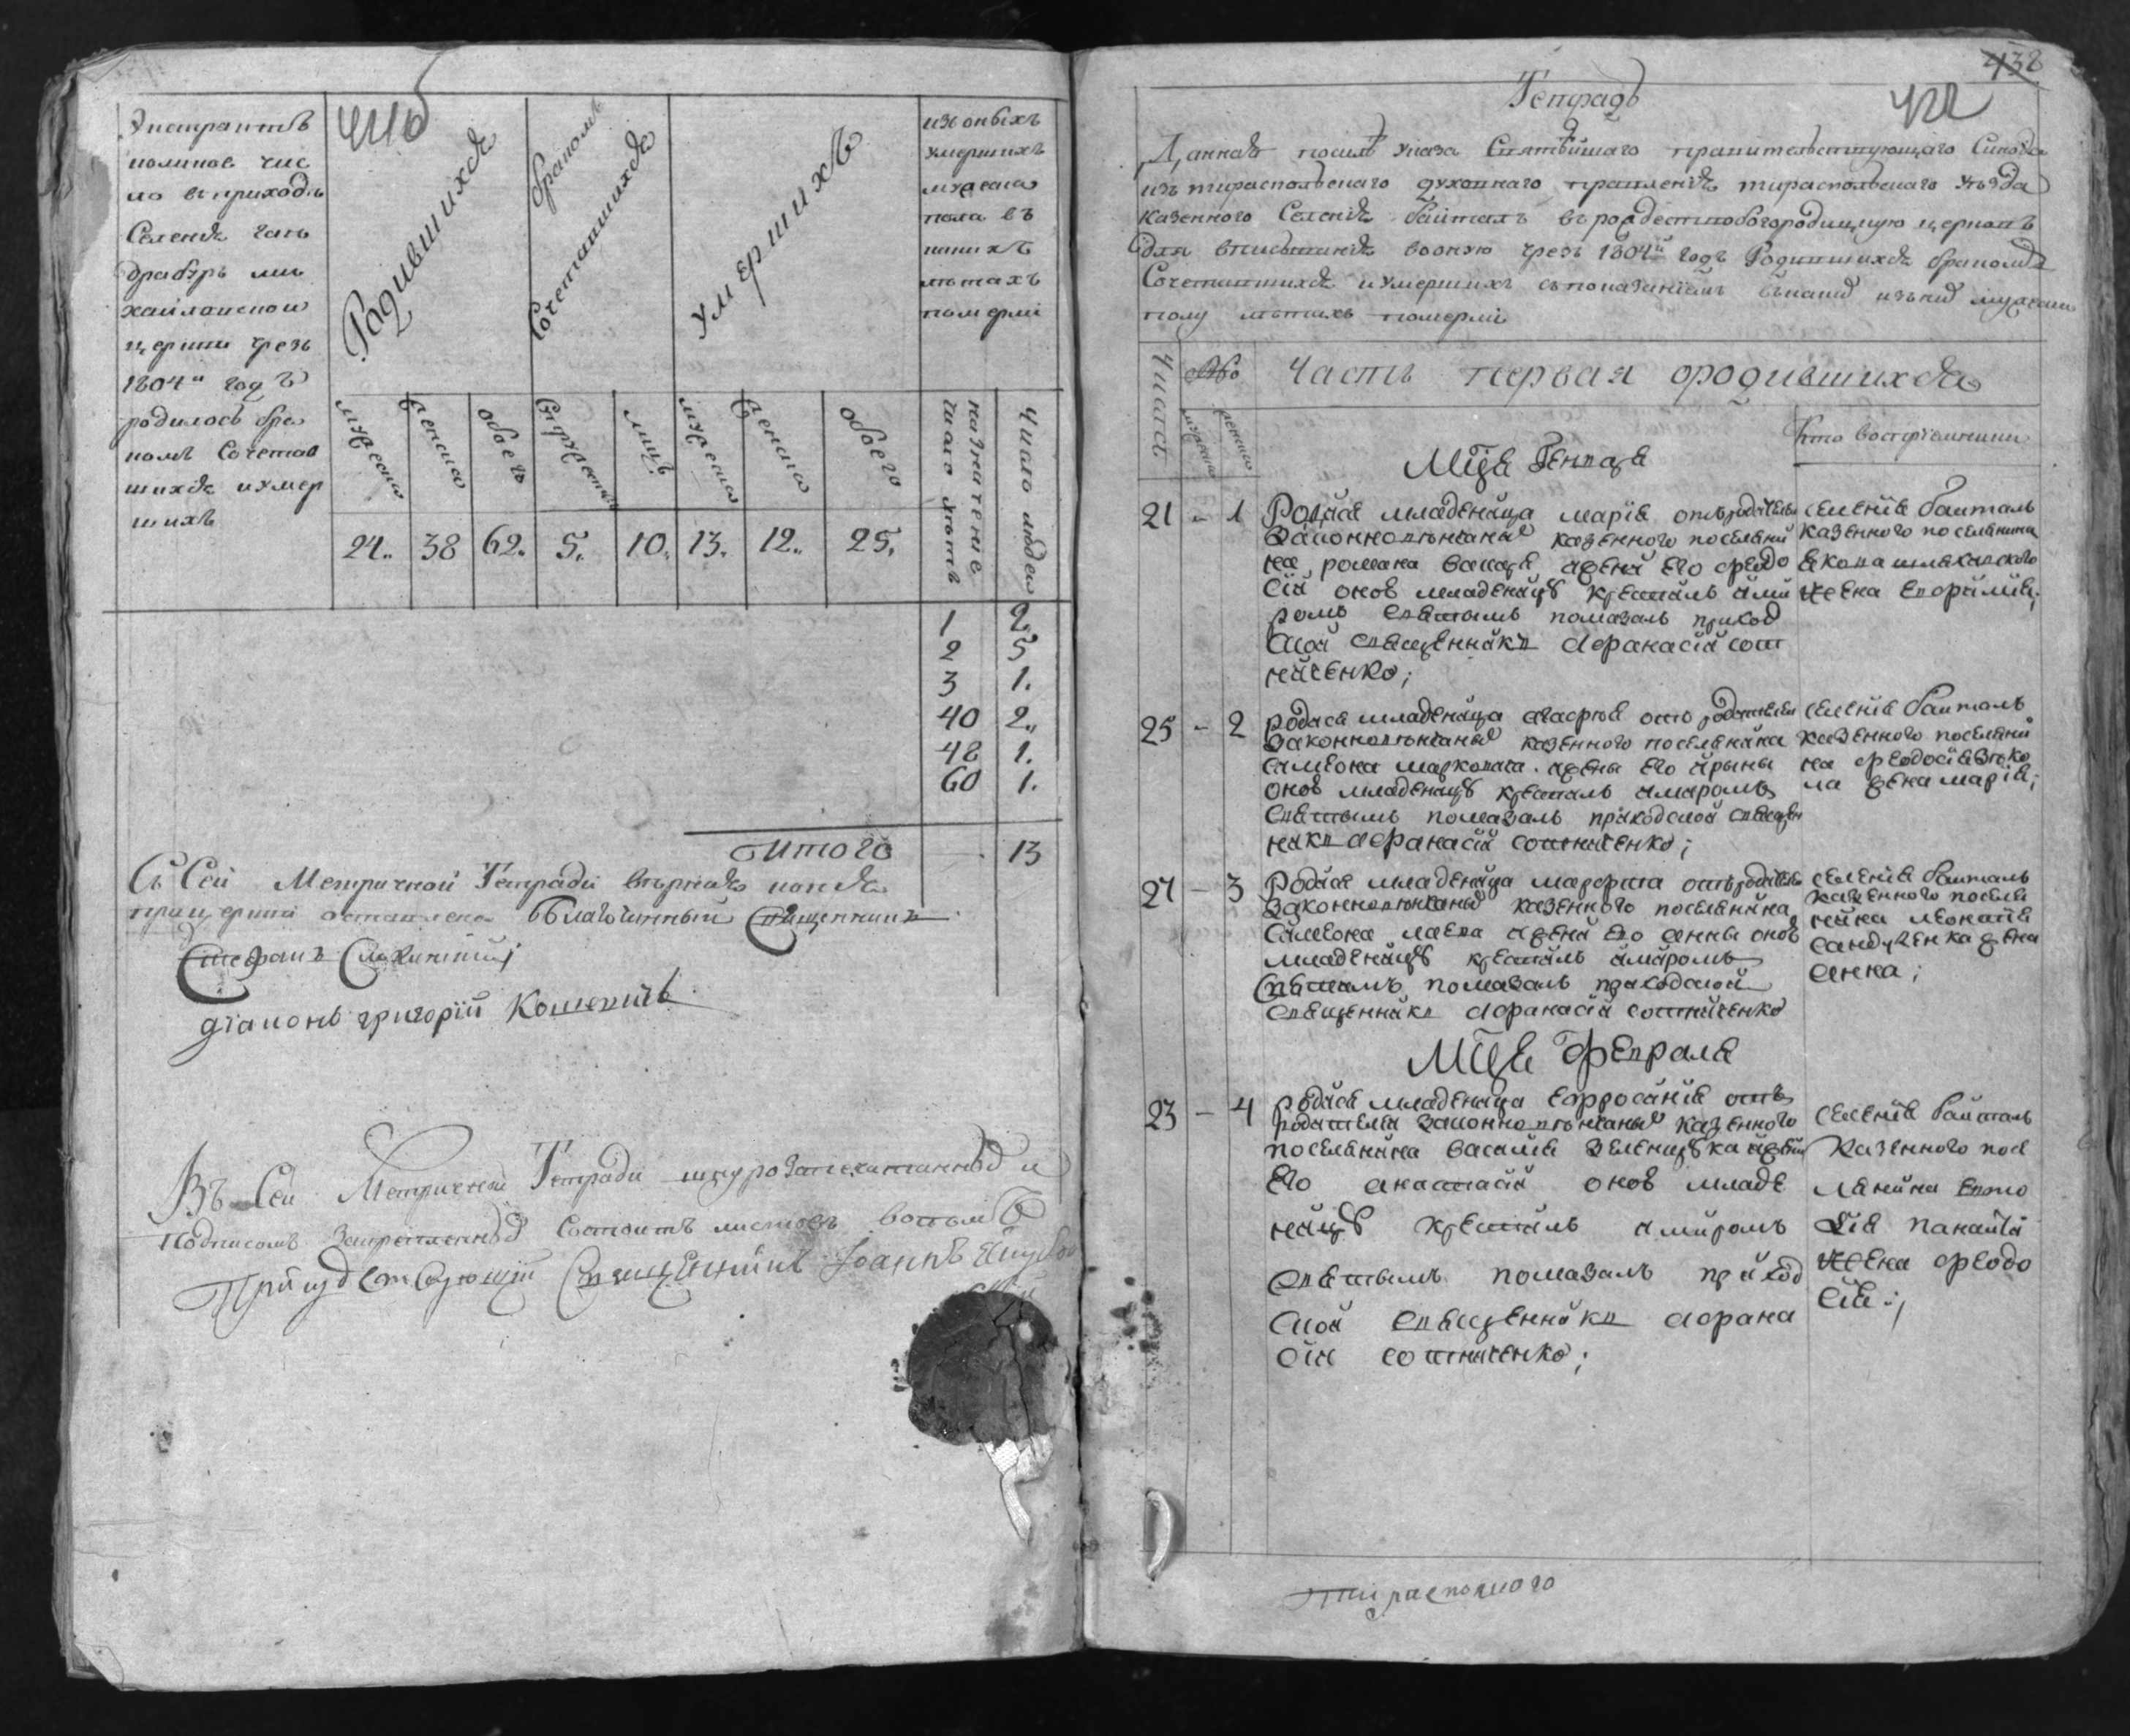 441об
Экстрактъ
коликое чис
ло въ приходѣ
Селенія Ган
драбуръ ми
хайловской
церкви чрезъ
1804й годъ
родилось бра
комъ Сочетав
шихся и умер
шихъ
Родившихся
бракомъ
Сочетавшихся
Умершихъ
изъ оныхъ
умершихъ
мужеска
пола въ
какихъ
лѣтахъ
померли
мужеска
женска
обоего
Супружествъ
лицъ
мужеска
женска
обоего
назначение
числа лѣтъ
Число людей
24. 38 62. 5. 10. 13. 12. 25.
1 2.
2 5
3 1.
40 2.
48 1.
60 1.
Итого 13
Съ Сей Метричной Тетради вѣрная копія
при церкви оставлена Благочинный Священникъ
Стефанъ
діаконъ григорій
Въ Сей Метричной Тетради шнурозапечатанной и
подписомъ закрепленной Состоитъ листовъ восемь
Присудствующій Священникъ Іоаннъ
438
442
Тетрадь
Данная по силѣ указа Святѣйшаго правительствующаго Синода
изъ тираспольскаго духовнаго правленія тираспольскаго уѣзда
казенного Селенія байталъ въ рождествобогородицкую церковь
для вписыванія во оную чрезъ 1804й годъ Родившихся бракомъ
Сочетавшихся и умершихъ съ показаніемъ въ какихъ изъ нихъ мужеска
полу лѣтахъ померли
Числа
мужеска
женска
Часть первая о родившихся
Кто восприемники
Мца Генваря
21 - 1 Родися младеница марія отъ родителей
законновѣнчаныхъ казенного поселяни
на романа жены его феодо
сіи оное младенище крестилъ и ми
ромъ святымъ помазалъ приход
ской священникъ афанасій сот
ниченко;
селенія байталъ
казенного поселянина
якова
жена евфимія;
25 - 2 родися младеница агафія отъ родителей
законновѣнчаныхъ казенного поселянина
симеона жены его ирины
оное младенище крестилъ и миромъ
святымъ помазалъ приходской священ
никъ афанасій сотниченко;
селенія байталъ
казенного поселяни
на феодосія
жена марія;
27 - 3 Родися младеница марфа отъ родителей
законновѣнчаныхъ казенного поселянина
симеона жены его анны оное
младенище крестилъ и миромъ
святымъ помазалъ приходской
священникъ афанасій сотниченко
селенія байталъ
казенного поселя
нина
жена
анна;
Мца февраля
23 - 4 родися младеница евфросинія отъ
родителей законновѣнчаныхъ казенного
поселянина василія жены
его анастасіи оное младе
нище крестилъ и миромъ
святымъ помазалъ приход
ской священникъ афана
сій сотниченко;
селенія байталъ
казенного посе
лянина
жена феодо
сія;